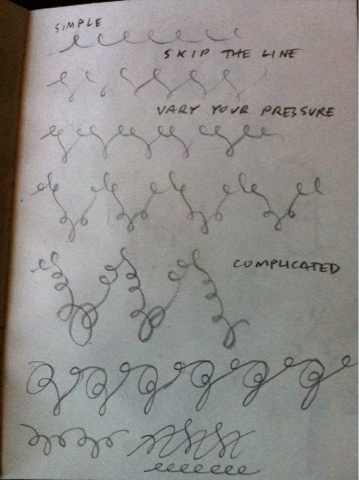 SIMPLE
SKIP THE LINE
VARY YOUR PRESSURE
COMPLICATED